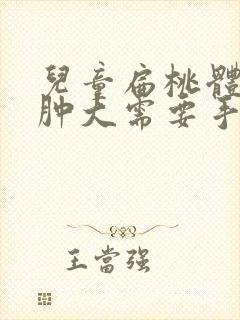 兒童扁桃體
肿大需要手
王當强